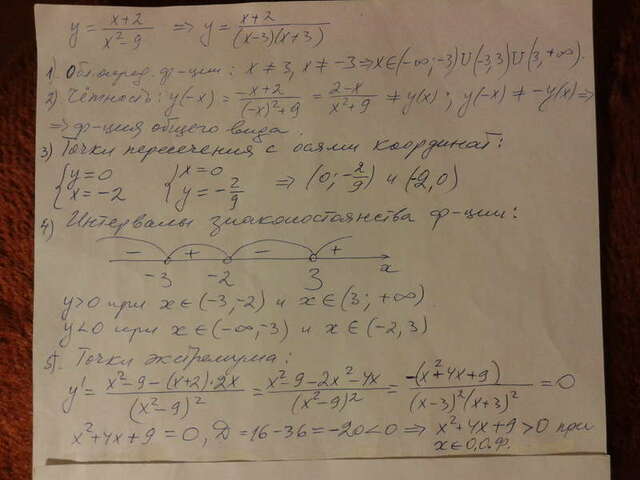 y = (x+2)/(x²-9) ⇒ y = (x+2)/((x-3)(x+3))
1) Обл. опред. ф-ции: x ≠ 3, x ≠ -3 ⇒ x∈(-∞; -3)∪(-3,3)∪(3,+∞).
2) Чётность: y(-x) = (-x+2)/((-x)²+9) = (2-x)/(x²+9) ≠ y(x); y(-x) ≠ -y(x) ⇒
⇒ ф-ция общего вида.
3) Точки пересечения с осями координат:
{y=0 {x=0
{x=-2 {y=-2/9 ⇒ (0; -2/9) и (-2,0)
4) Интервалы знакопостоянства ф-ции:
- + - +
-3 -2 3 x
y>0 при x∈(-3,-2) и x∈(3; +∞)
y<0 при x∈(-∞,-3) и x∈(-2,3)
5). Точки экстремума:
y' = (x²-9-(x+2)·2x)/(x²-9)² = (x²-9-2x²-4x)/(x²-9)² = -(x²+4x+9)/((x-3)²(x+3)²) = 0
x²+4x+9=0, D=16-36=-20<0 ⇒ x²+4x+9>0 при
x∈О.О.Ф.